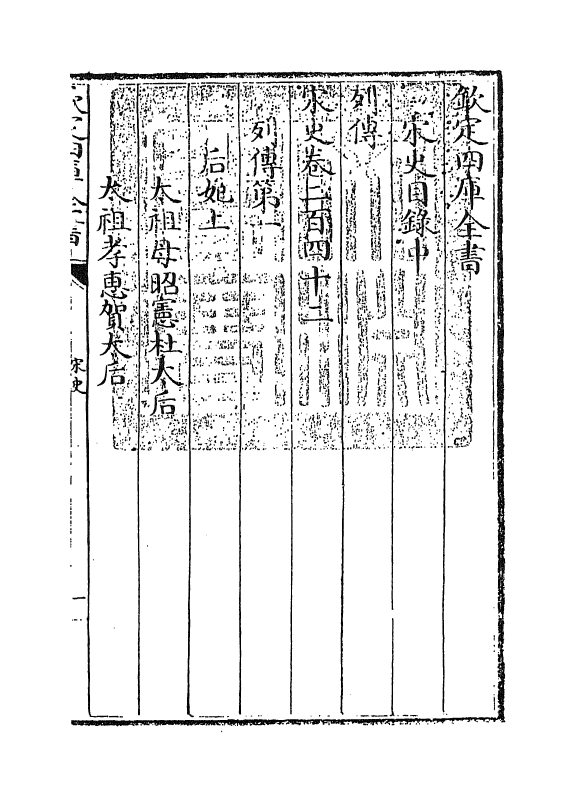 欽定四庫全書
宋史目錄中
列傳
宋史卷二百四十二
列傳第一
后妃上
太祖母昭憲杜太后
太祖孝惠賀太后
欽定四庫全書
宋史
一